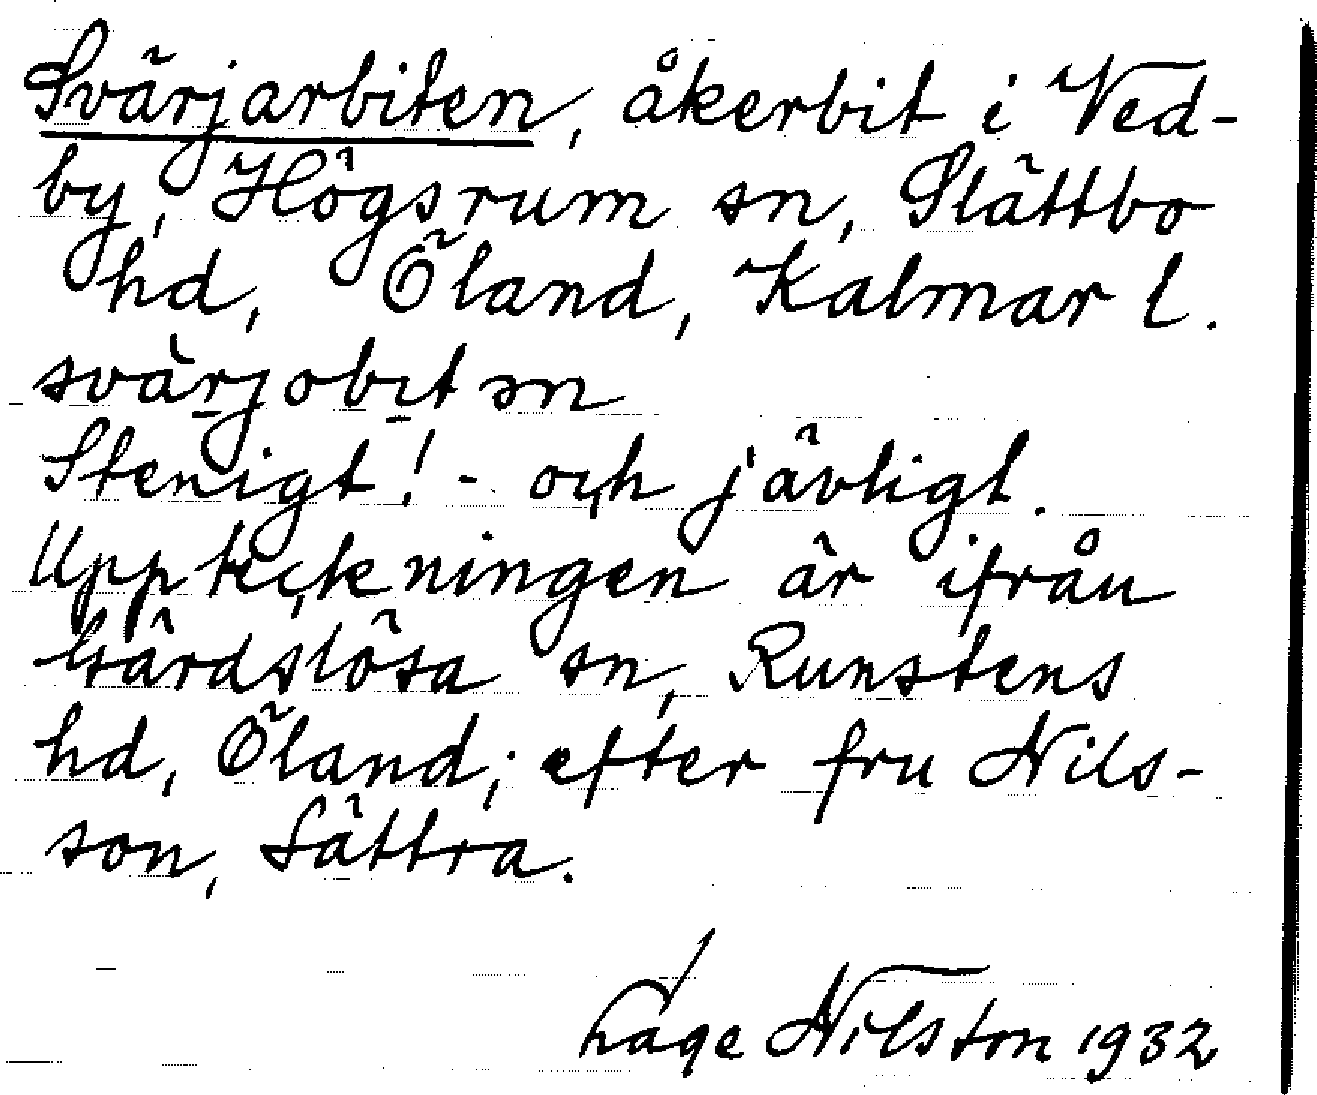 Svärjarbiten, åkerbit i Ved-
by, Högsrum sn, Slättbo
hd, Öland, Kalmar l.
svàrjobitən
Stenigt! - och jävligt.
Uppteckningen är ifrån
Gärdslösa sn, Runstens
hd, Öland; efter fru Nils-
son, Sättra.
Låge Nilsson 1932